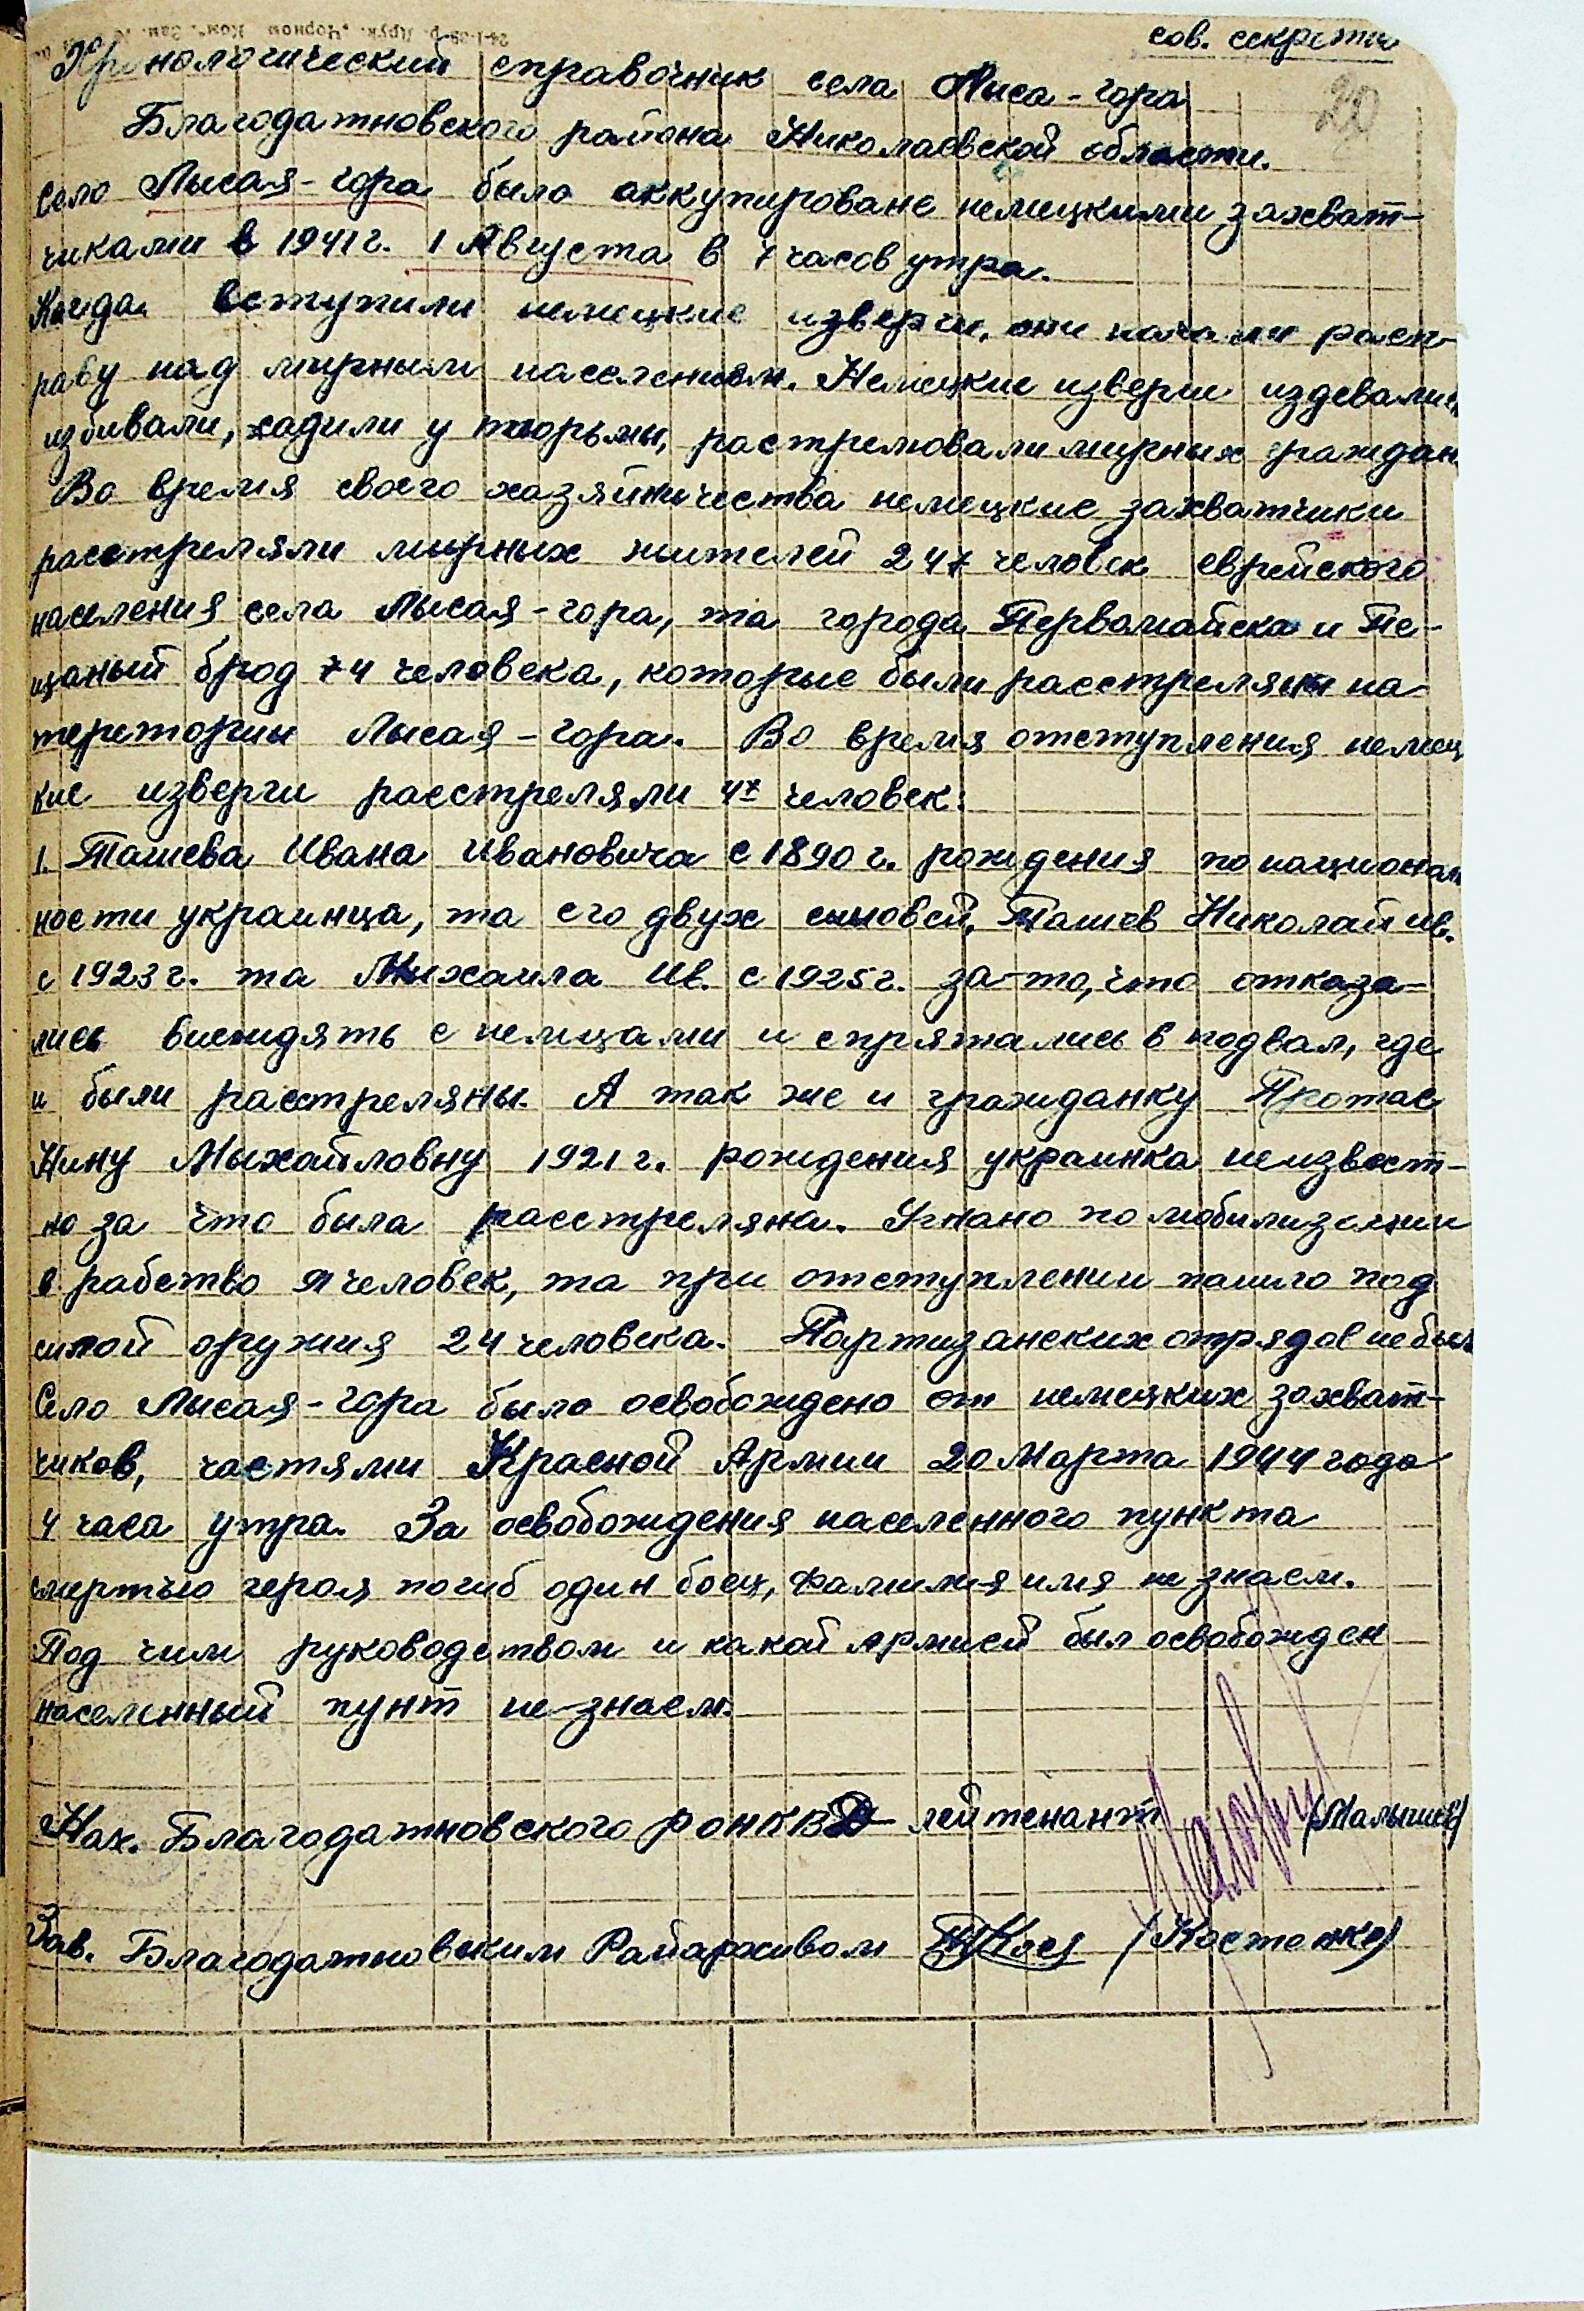 сов. секретно
20
Хронологический справочник села Лыса-гора
Благодатновского района Николаевской области.
Село Лысая-гора было аккупированс немецкими захват-
чиками в 1941 г. 1 Августа в 7 часов утра.
Когда вступили немецкие изверги, они начали расп-
раву над мирным населением. Немецкие изверги издевались
избивали, садили у тюрьмы, растреловали мирных граждан.
Во время своего хазяйничества немецкие захватчики
расстреляли мирных жителей 247 человек еврейского
населения села Лысая-гора, та города Первомайска и Пе-
щаный брод 74 человека, которые были расстреляны на
тереторгии Лысая-гора. Во время отступления немец
кие изверги расстреляли 4х человек:
1. Ташева Ивана Ивановича с 1890 г. рождения по национал
ности украинца, та его двух сыновей, Ташев Николай Ив.
с 1923 г. та Михаила Ив. с 1925 г. за-то, что отказа-
лись с немцами и спрятались в подвал, где
и были расстреляны. А так же и гражданку Протас
Нину Михайловну 1921 г. рождения украинка неизвест-
но за что была расстреляна. Угнано по мобилизации
в рабство человек, та при отступлении пошло под
силой оружия 24 человека. Партизанских отрядов не был
Село Лысая-гора было освобождено от немецких захват-
чиков, частями Красной Армии 20 Марта 1944 года
4 часа утра. За освобождения населенного пункта
смертью героя погиб один боец, фамилия имя не знаем.
Под чим руководством и какой армией был освобожден
населенный пунт не знаем.
Нач. Благодатновского РОНКВД лейтенант (Малышев)
Зав. Благодатновским Райархивом (Костенко)